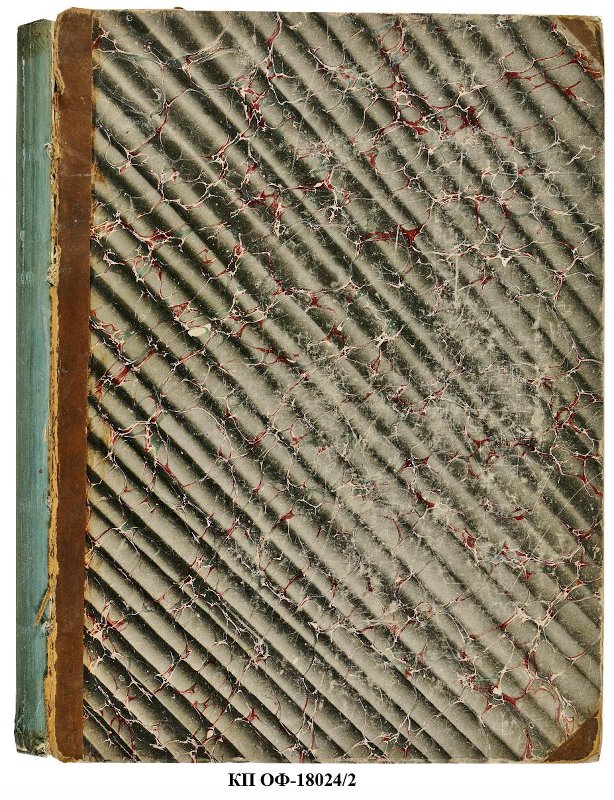 КП ОФ-18024/2